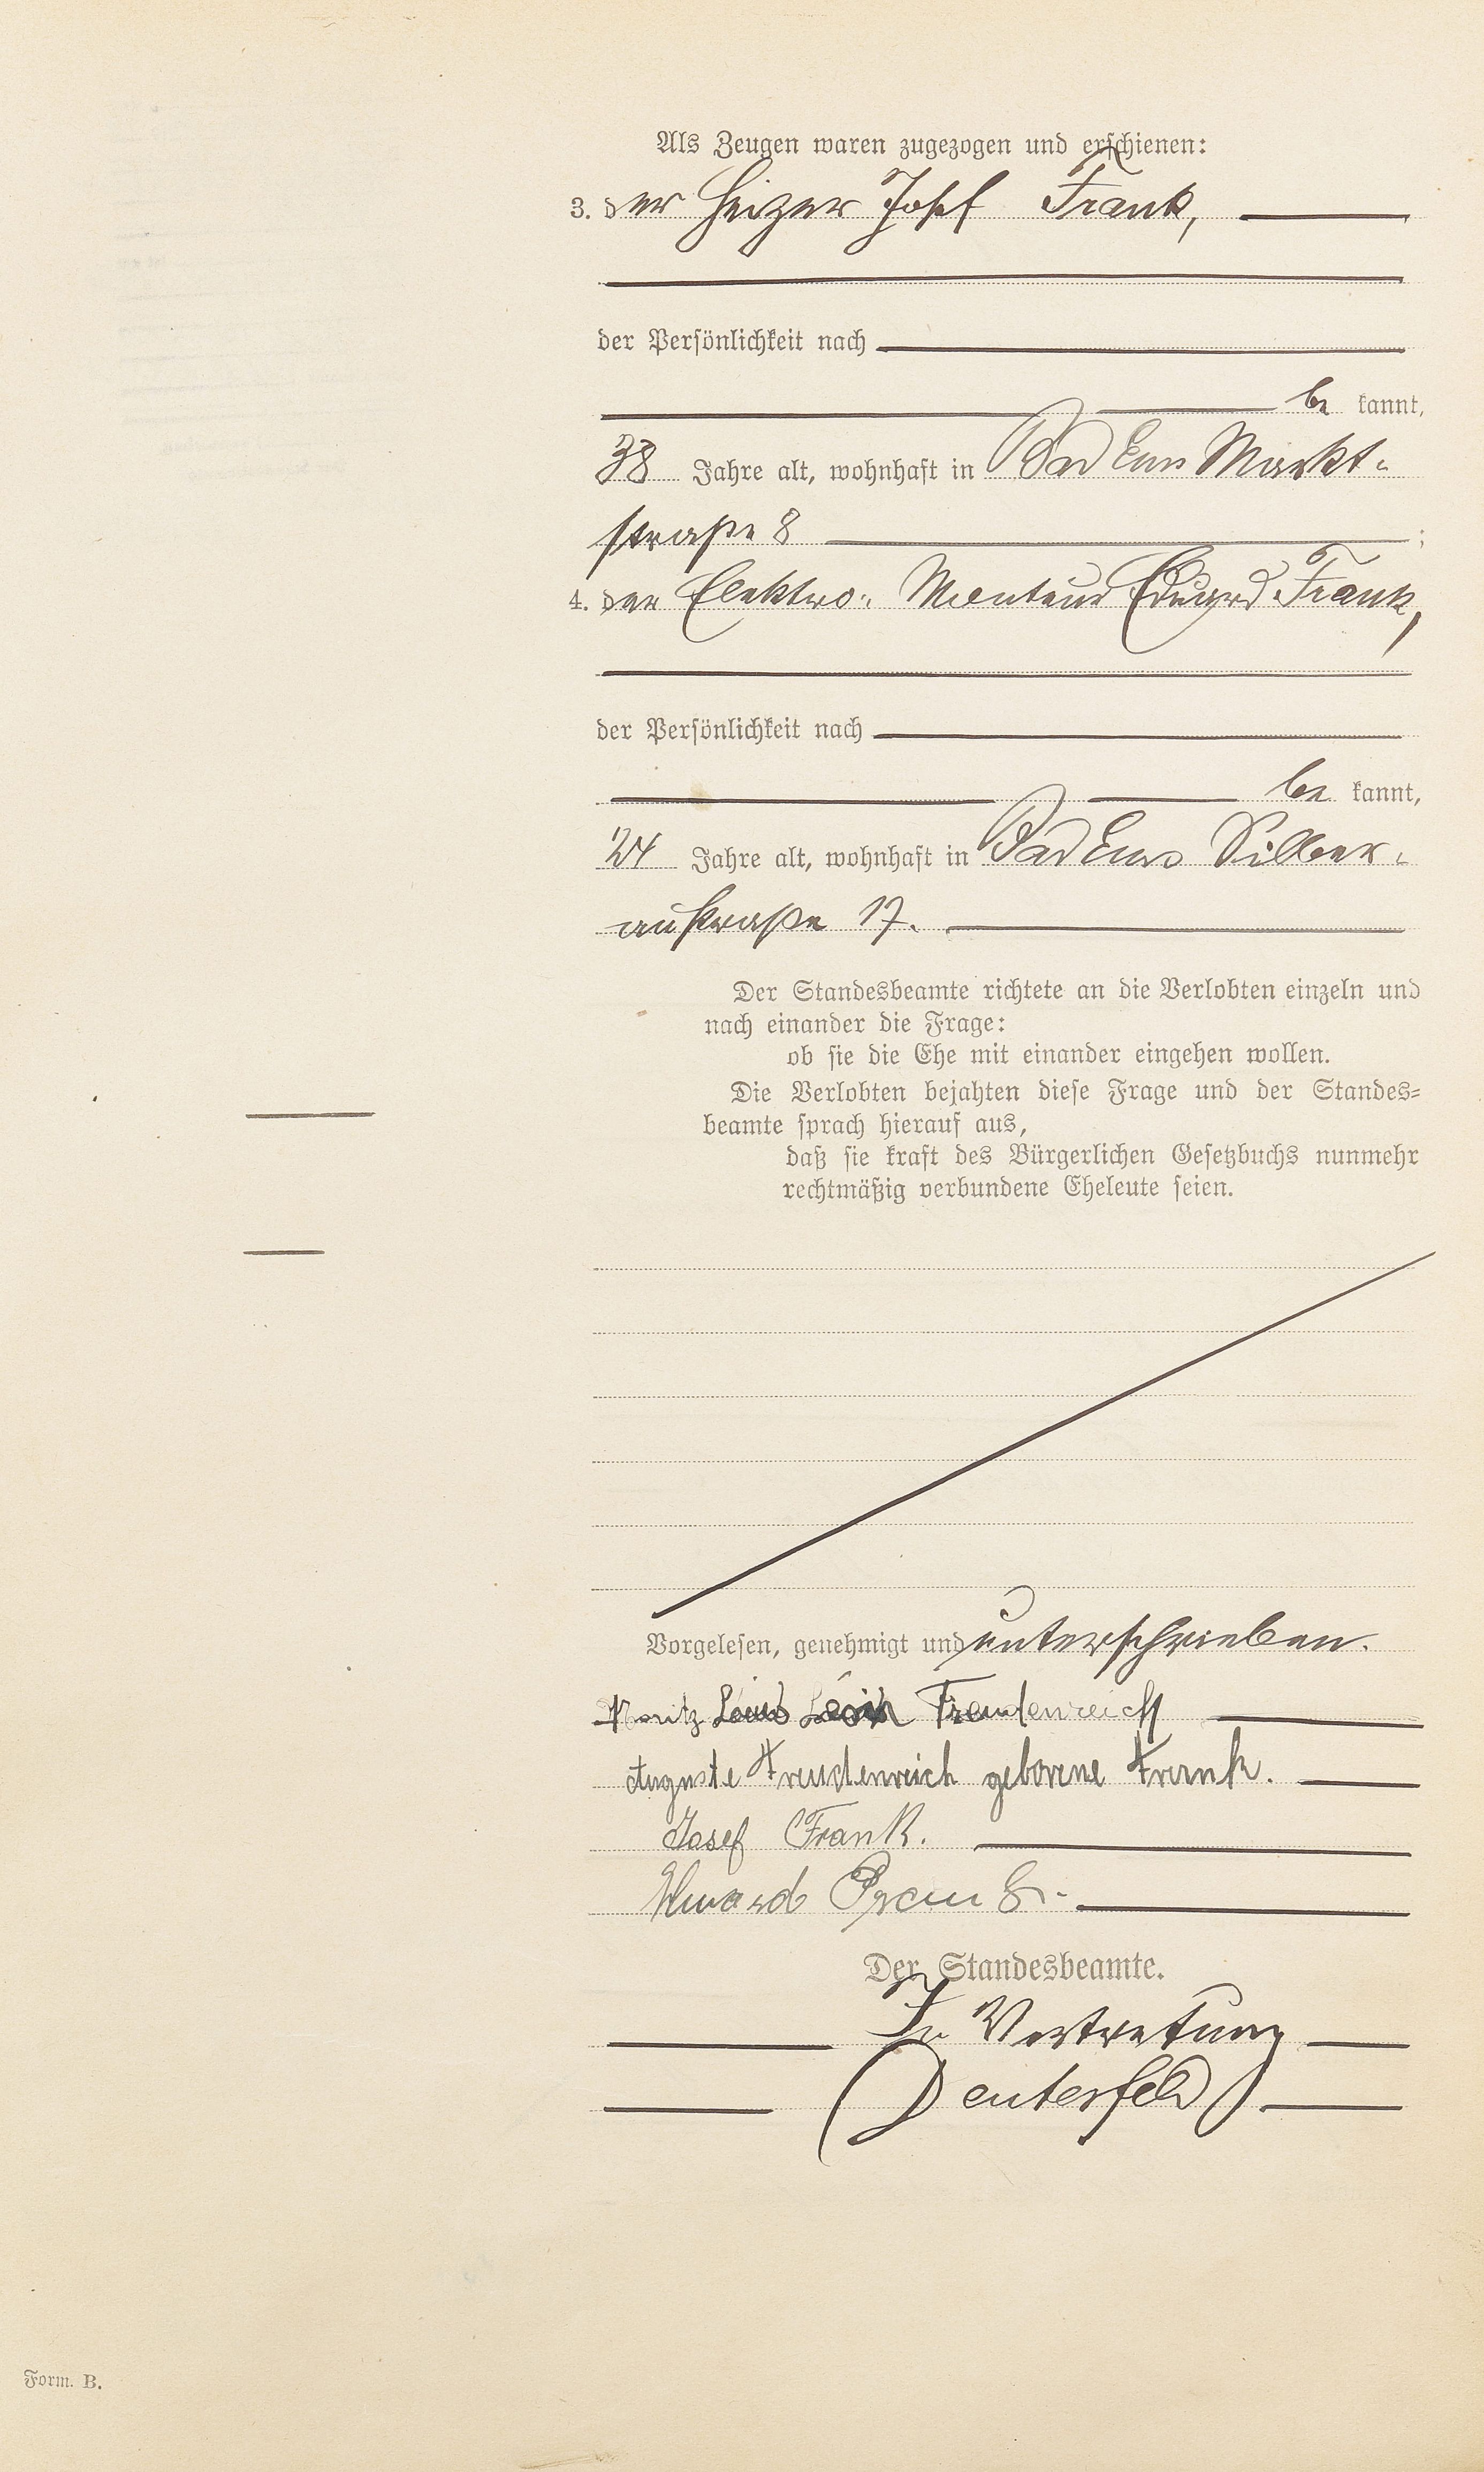 Als Zeugen waren zugezogen und erschienen:
3. der Heizer Josef Frank,
der Persönlichkeit nach
be kannt,
38 Jahre alt, wohnhaft in Bad Ems Markt-
straße 8 ;
4. der Elektro-Monteur Eduard Frank,
der Persönlichkeit nach
be kannt,
24 Jahre alt, wohnhaft in Bad Ems Silber-
austraße 17.
Der Standesbeamte richtete an die Verlobten einzeln und
nach einander die Frage:
ob sie die Ehe mit einander eingehen wollen.
Die Verlobten bejahten diese Frage und der Standes-
beamte sprach hierauf aus,
daß sie kraft des Bürgerlichen Gesetzbuchs nunmehr
rechtmäßig verbundene Eheleute seien.
Vorgelesen, genehmigt und unterschrieben.
Moritz Freudenreich
Auguste Freudenreich geborene Frank.
Josef Frank.
Eduard Frank.
Der Standesbeamte.
In Vertretung
Deuterfeld
Form. B.